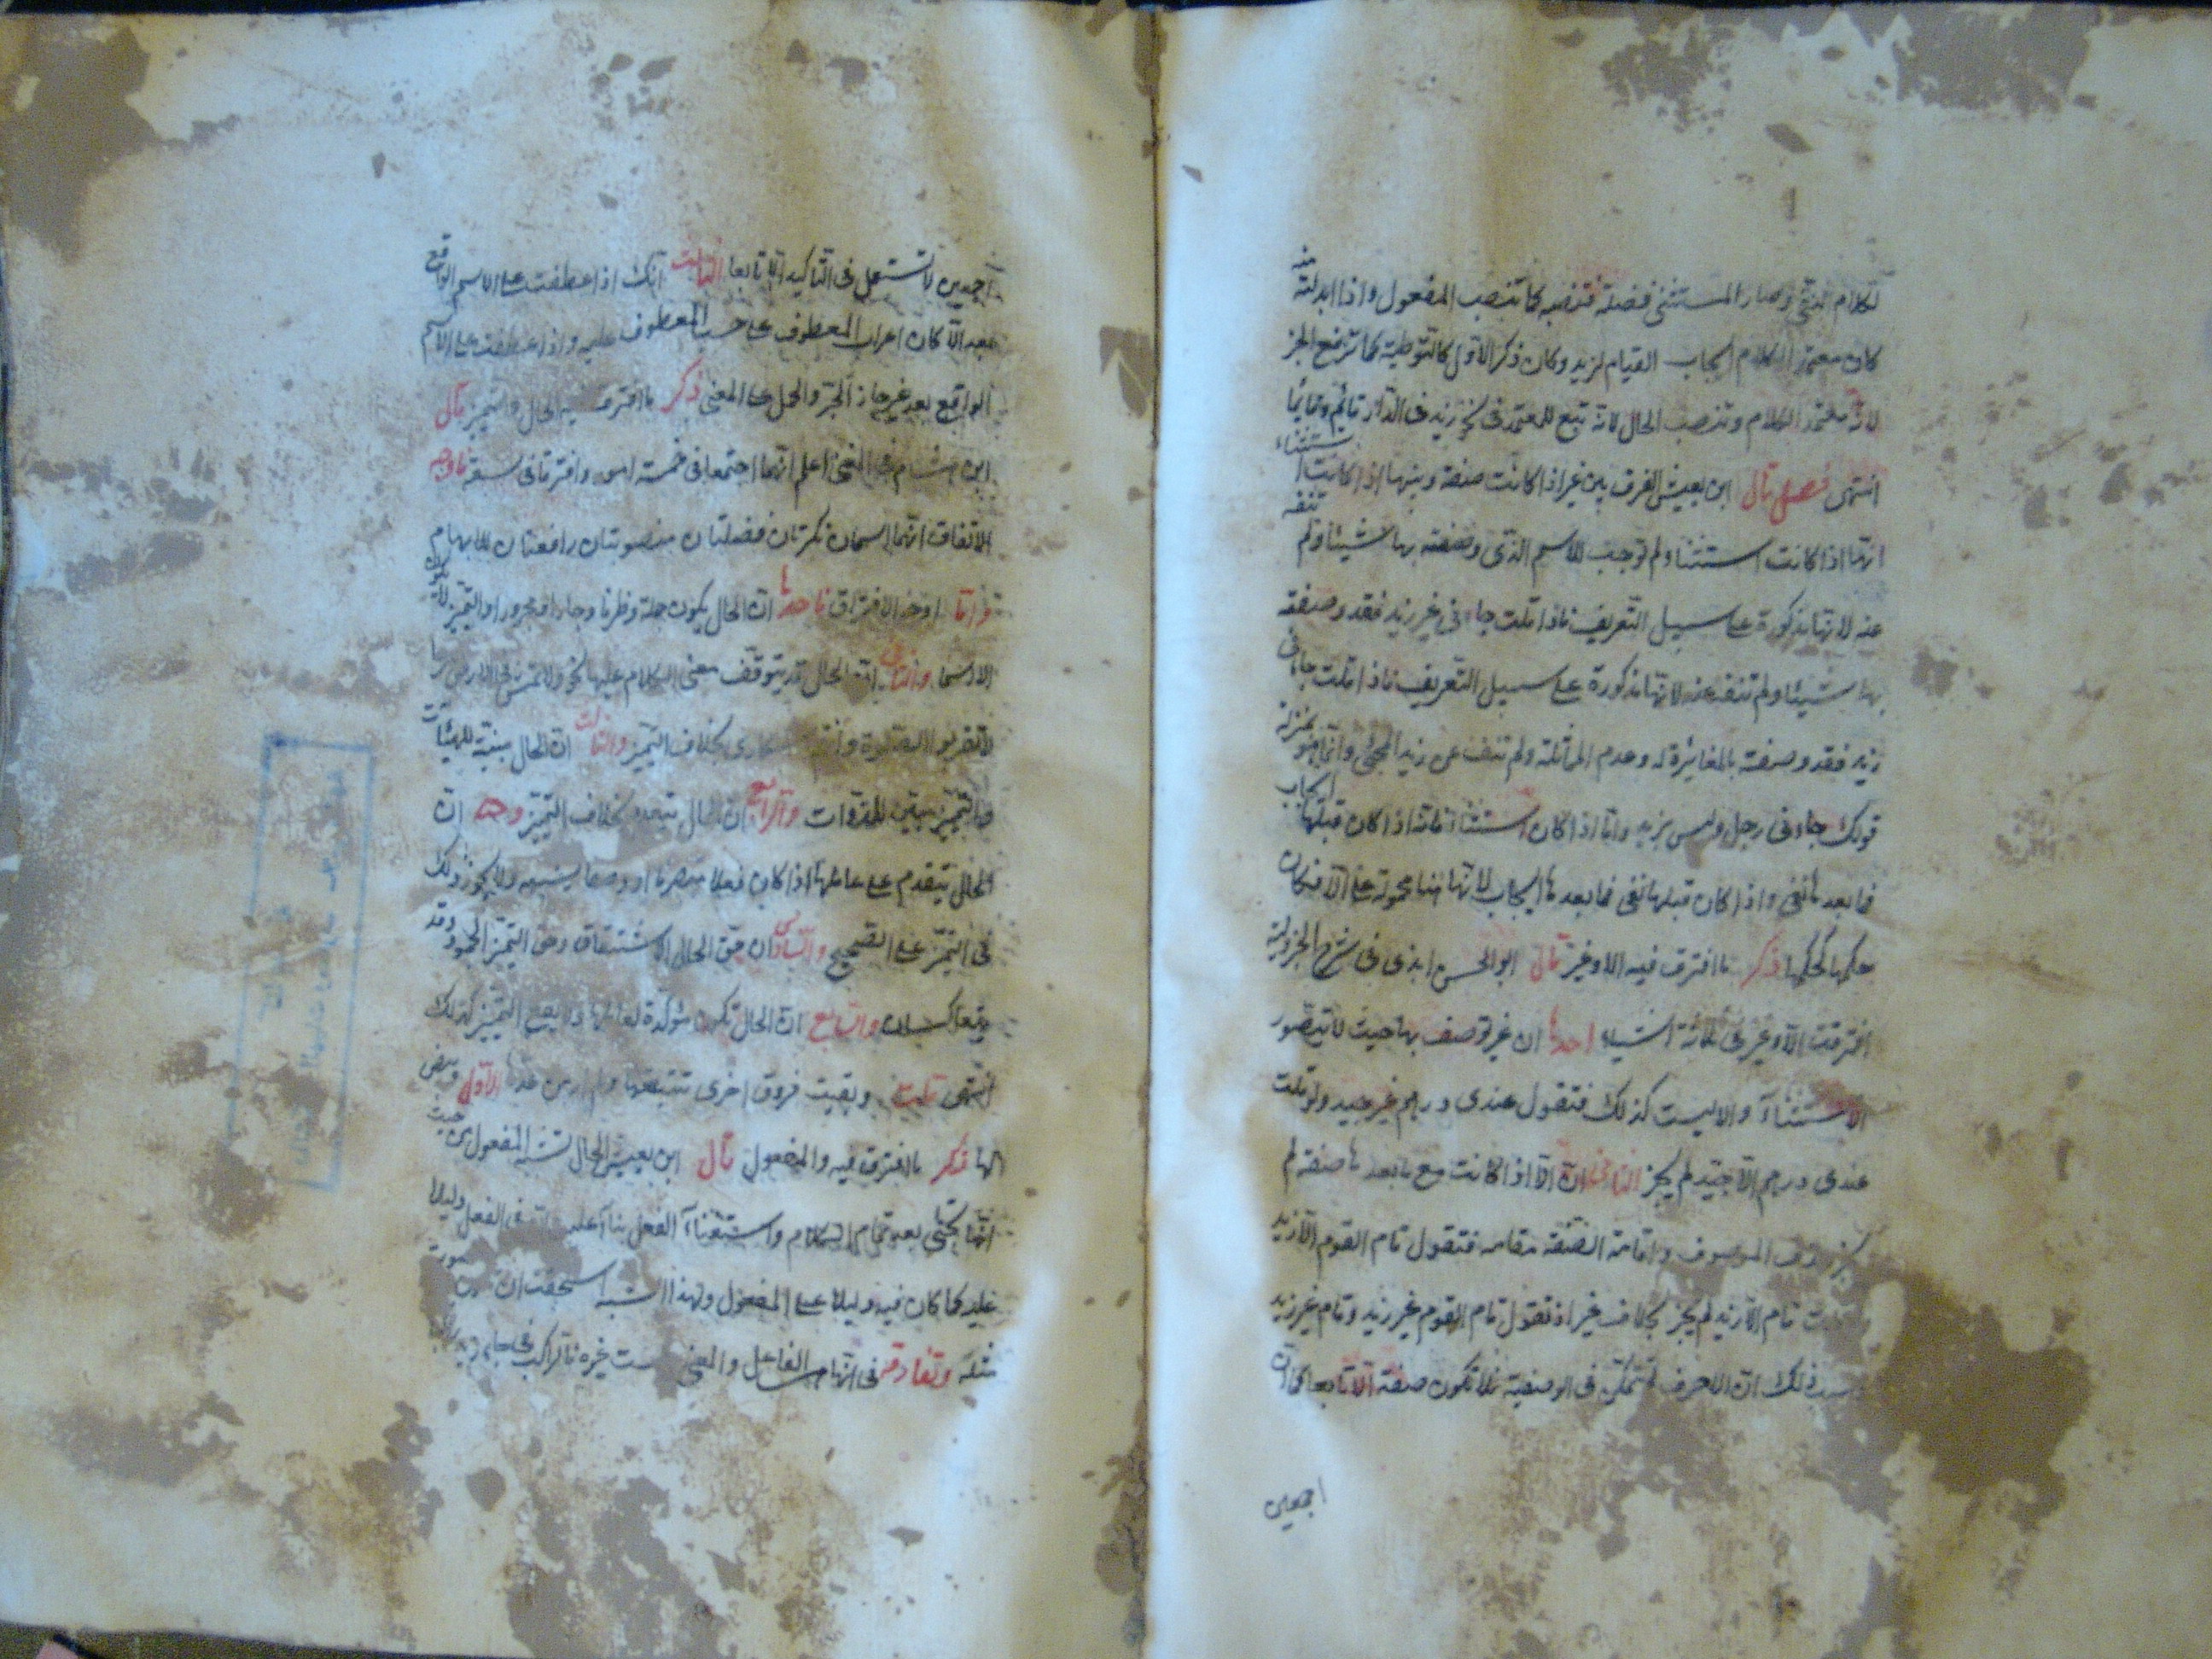 الكلام النفي وصار المستثنى فضلة فتنصبه كما تنصب المفعول واذا ابدلته منه
كان معتمد الكلام ايجاب القيام لزيد وكان ذكر الاول كالتوطية كما ترفع الخبر
لانه معتمد الكلام وتنصب الحال لانه تبع للمعتمد في نحو زيد في الدار قائم وقائما
انتهى فصل قال ابن يعيش الفرق بين غير اذا كانت صفة وبينها اذا كانت استثناء
انها اذا كانت استثناء لم توجب للاسم الذى وصفته بها شيئا ولم تنفه
عنه لانها مذكورة على سبيل التعريف فاذا قلت جاءنى غير زيد فقد وصفته
بها شيئا ولم تنف عنه لانها مذكورة على سبيل التعريف فاذا قلت جاءنى
زيد فقد وصفته بالمغايرة له وعدم المماثلة ولم تنف عن زيد المجئ وانما هو بمنزلة
قولك جاءنى رجل وليس بزيد واما اذا كان استثناء فانه اذا كان قبلها ايجاب
فما بعدها نفى واذا كان قبلها نفى فما بعدها ايجاب لانها هنا محمولة على الا فكان
حكمها كحكمها ذكر ما افترق فيه الا وغير قال ابو الحسن ابذى فى شرح الجزولية
افترقت الا وغير فى ثلاثة اشياء احدها ان غير توصف بها حيث لا يتصور
الاستثناء والا ليست كذلك فتقول عندى درهم غير جيد ولو قلت
عندى درهم الا جيد لم يجز الثانى ان الا اذا كانت مع ما بعدها صفة لم
يجز حذف الموصوف واقامة الصفة مقامه فتقول قام القوم الا زيد
قلت قام الا زيد لم يجز بخلاف غير اذ تقول قام القوم غير زيد وقام غير زيد
وسبب ذلك ان الا حرف لم تتمكن فى الوصفية فلا تكون صفة الا تابعا كما ان
اجمعين
اجمعين لا تستعمل فى التاكيد الا تابعا الثالث انك اذا عطفت على الاسم الواقع
بعد الا كان اعراب المعطوف على حسب المعطوف عليه واذا عطفت على الاسم
الواقع بعد غير جاز الجر والحمل على المعنى ذكر ما افترق فيه الحال والتمييز قال
ابن هشام فى المغنى اعلم انهما اجتمعا فى خمسة امور وافترقا فى سبعة فاوجه
الاتفاق انهما اسمان نكرتان فضلتان منصوبتان رافعتان للابهام
واما اوجه الافتراق فاحدها ان الحال يكون جملة وظرفا وجارا ومجرورا والتمييز لا يكون
الا اسما والثانى ان الحال قد يتوقف معنى الكلام عليها نحو ولا تمش فى الارض مرحا
لا تقربوا الصلوة وانتم سكارى بخلاف التمييز والثالث ان الحال مبينة للهيئات
والتمييز مبين للذوات والرابع ان الحال يتعدد بخلاف التمييز ان
الحال يتقدم على عاملها اذا كان فعلا متصرفا او وصفا يشبهه ولا يجوز ذلك
فى التمييز على الصحيح والسادس ان حق الحال الاشتقاق وحق التمييز الجمود وقد
يتعاكسان والسابع ان الحال تكون مؤكدة لعاملها ولا يقع التمييز كذلك
انتهى قلت وبقيت فروق اخرى نتتبعها ولم ار من عدها الاول
ذكر ما افترق فيه والمفعول قال ابن يعيش الحال تشبه المفعول من حيث
انها تجئ بعد تمام الكلام واستغناء الفعل فى الفعل دليلا
عليه كما كان فيه دليلا على المفعول ولهذا الشبه استحقت ان تكون منصوبة
مثله وتفارقه فى انها هى الفاعل والمعنى وليست غيره فالراكب فى جاء زيد راكبا